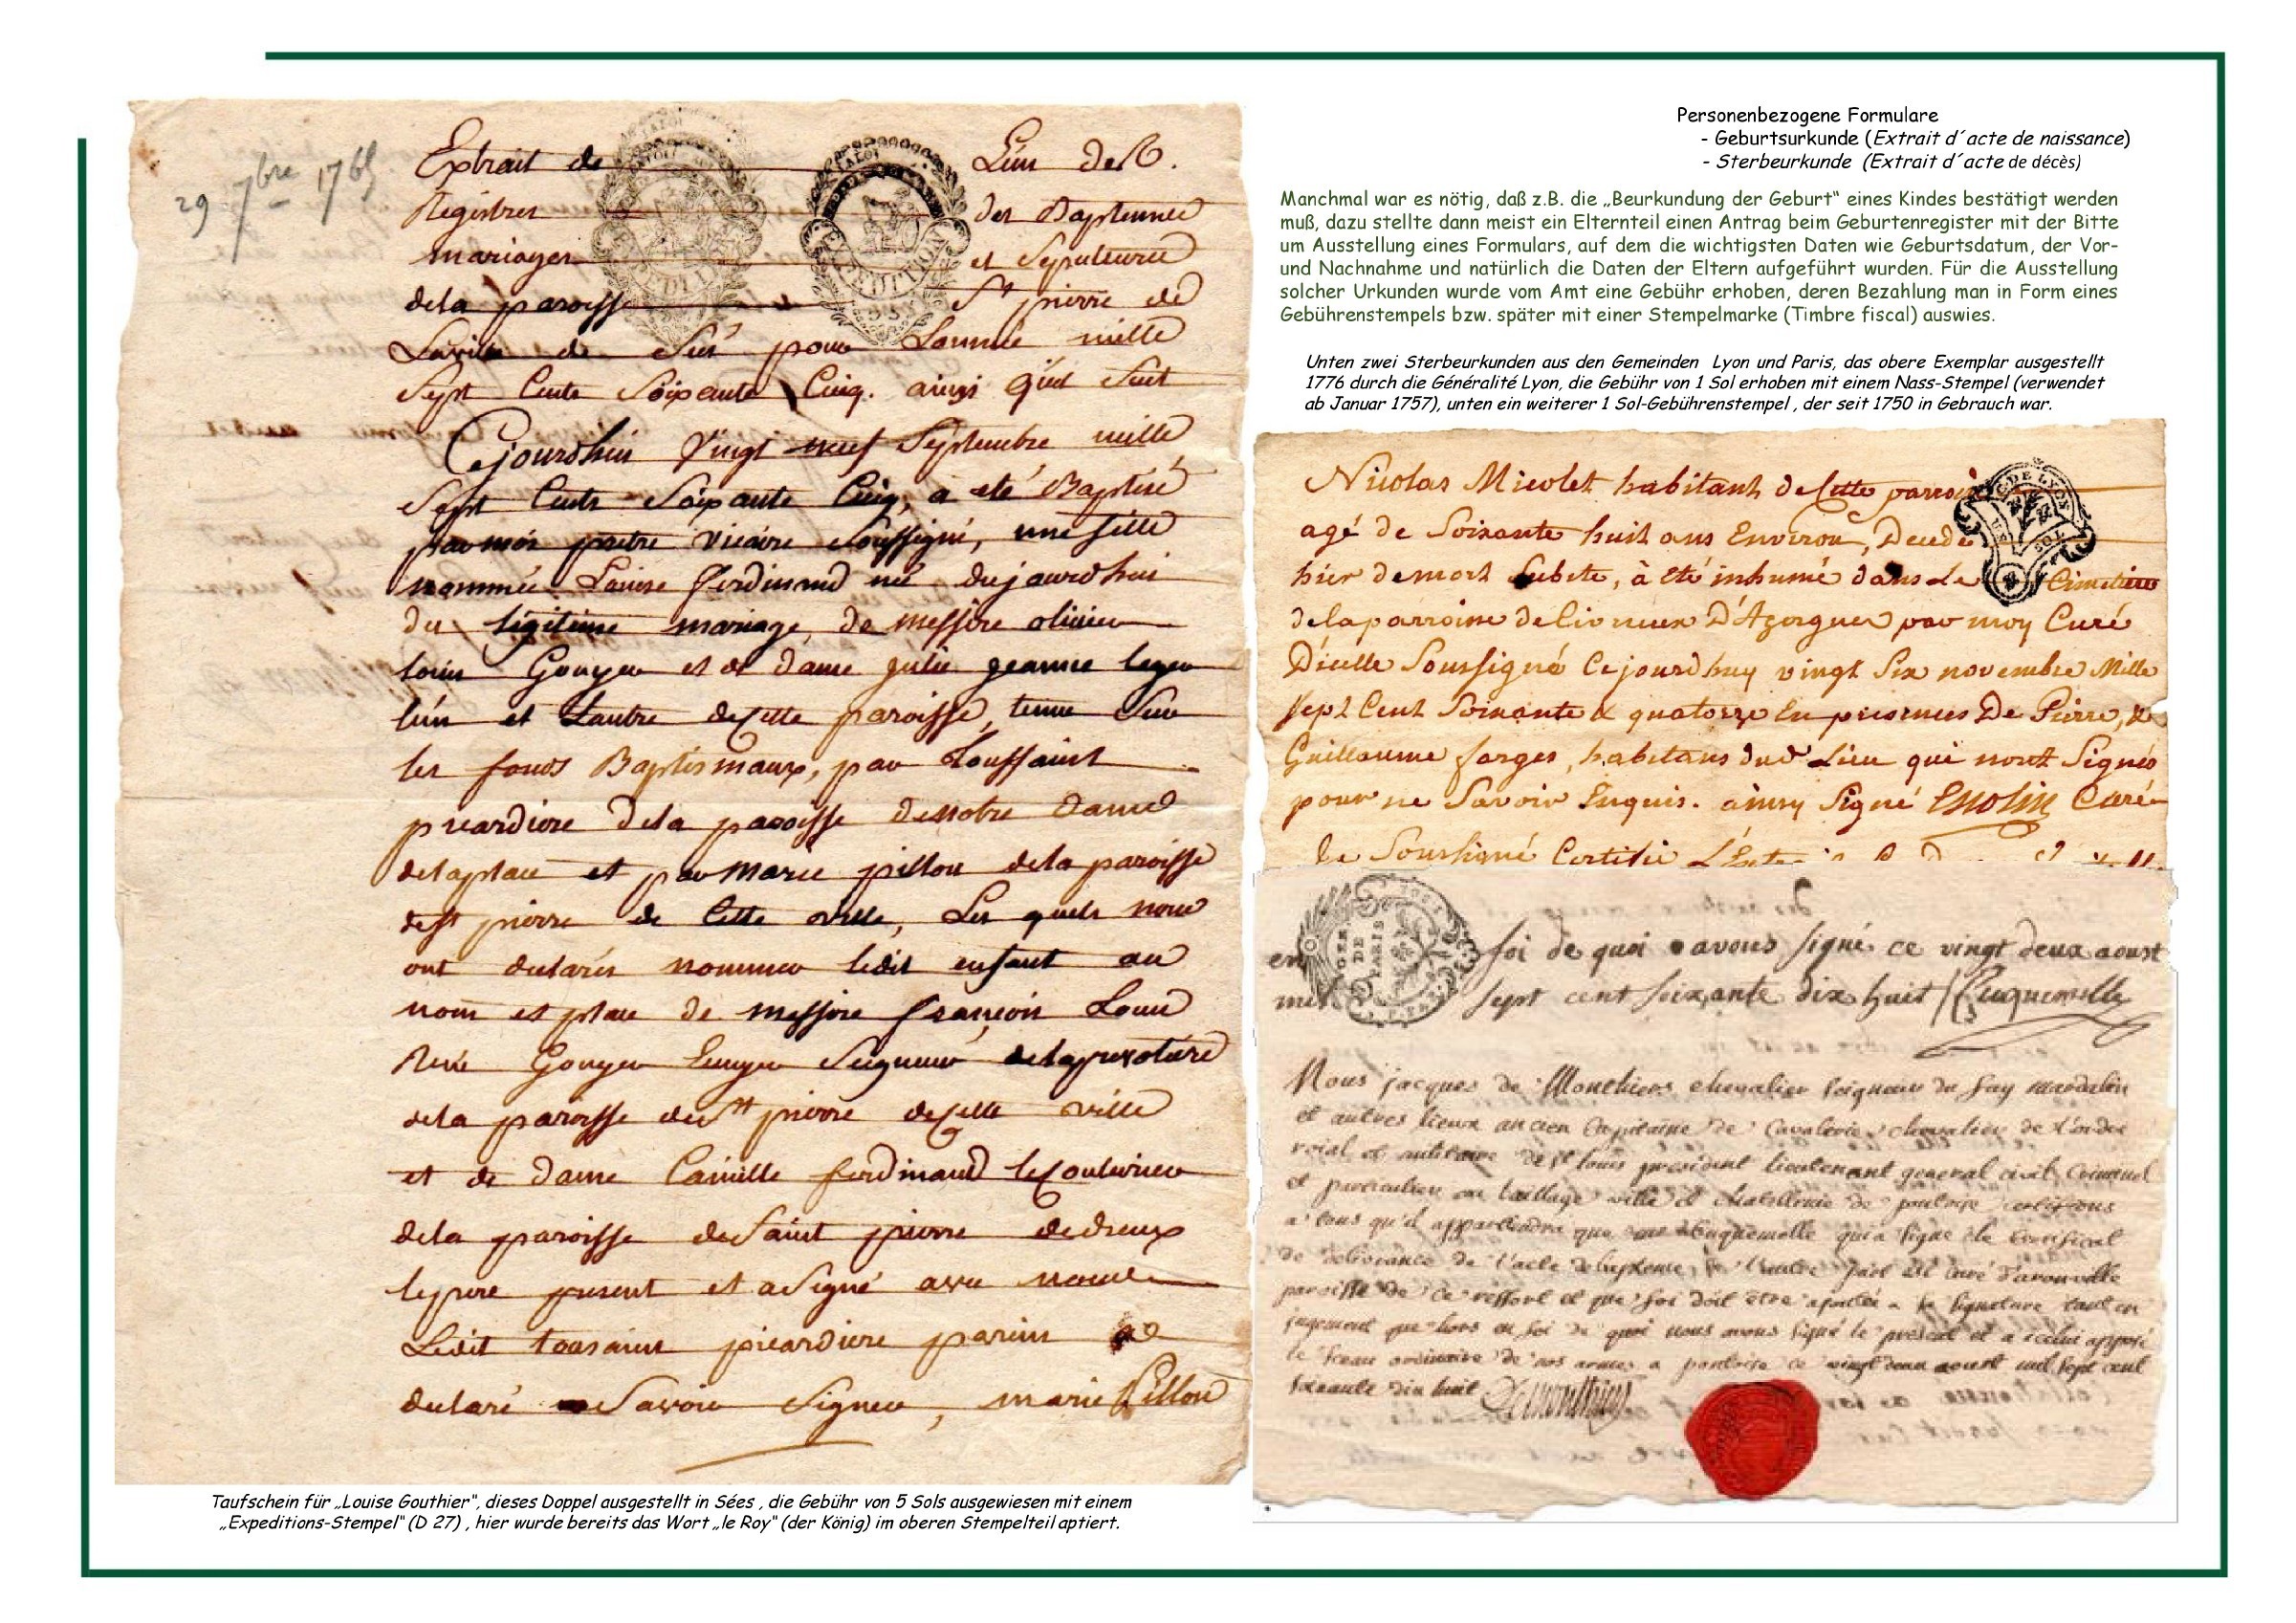 29 7bre 1765
Extrait de L'un des
Registres des Baptemes
mariages et Sepultures
dela paroisse St pierre de
La ville de pour Lannée mille
Sept Cents Soixante Cinq. ainsi qu'il Suit
Cejourdhui Vingt neuf Septembre mille
Sept Cents Soixante Cinq, a eté Baptisé
par moi pretre vicaire Soussigné, une fille
nommée Louise ferdinand née dujourdhui
du légitime mariage, de messire olivier
louis Gouyer et de dame julie jeanne
l'un et Lautre decette paroisse, tenue Sur
les fonds Baptismaux, par toussaint
picardiere dela paroisse denotre dame
delaplace et par marie pillon dela paroisse
dest pierre de Cette ville, Les quels nous
ont declarés nommer ledit enfant au
nom et place de messire françois Louis
René Gouyer Ecuyer Seigneur
dela paroisse de St pierre decette ville
et de dame Camille ferdinand
dela paroisse deSaint pierre dedreux
le pere present et aSigné avec nous
Ledit tousaint picardiere parain
declaré Savoir Signer, marie Pillon
Taufschein für „Louise Gouthier“, dieses Doppel ausgestellt in Sées , die Gebühr von 5 Sols ausgewiesen mit einem
„Expeditions-Stempel“ (D 27) , hier wurde bereits das Wort „le Roy“ (der König) im oberen Stempelteil aptiert.
Personenbezogene Formulare
- Geburtsurkunde (Extrait d´acte de naissance)
- Sterbeurkunde (Extrait d´acte de décès)
Manchmal war es nötig, daß z.B. die „Beurkundung der Geburt“ eines Kindes bestätigt werden
muß, dazu stellte dann meist ein Elternteil einen Antrag beim Geburtenregister mit der Bitte
um Ausstellung eines Formulars, auf dem die wichtigsten Daten wie Geburtsdatum, der Vor-
und Nachnahme und natürlich die Daten der Eltern aufgeführt wurden. Für die Ausstellung
solcher Urkunden wurde vom Amt eine Gebühr erhoben, deren Bezahlung man in Form eines
Gebührenstempels bzw. später mit einer Stempelmarke (Timbre fiscal) auswies.
Unten zwei Sterbeurkunden aus den Gemeinden Lyon und Paris, das obere Exemplar ausgestellt
1776 durch die Généralité Lyon, die Gebühr von 1 Sol erhoben mit einem Nass-Stempel (verwendet
ab Januar 1757), unten ein weiterer 1 Sol-Gebührenstempel , der seit 1750 in Gebrauch war.
Nicolas Micolet habitant deCette
agé de Soixante huit ans Environ, Decedé
hier demort Subite, à été inhumé dans Le Cimetiere
delaparroisse de D'Azergues par moy Curé
Dicelle Soussigné Cejourdhuy vingt Six novembre Mille
Sept Cent Soixante & quatorze En presences De Pierre, &
Guillaume forges, habitans dud Lieu qui nont Signés
pour ne Savoir Enquis. ainsy Signé Curé
Le Soussigné Certifie
DE LYON
SOL
GEN DE PARIS
en foi de quoi avons signé ce vingt deux aoust
mil sept cent soixante dix huit
Nous jacques de Monthiers chevalier seigneur du fay
et autres lieux ancien Capitaine de Cavalerie chevalier de l'ordre
roial et militaire de St louis president lieutenant general civil Criminel
et particulier au baillage ville et chatellenie de pontoise certifions
a tous qu'il appartiendra que qui a signé le
de delivrance de l'acte de l'autre part est curé
paroisse de ce ressort et que foi doit etre ajoutée a sa signature tant en
jugement que hors en foi de quoi nous avons signé le present et a icelui apposé
le sceau ordinaire de nos armes a pontoise ce vingt deux aoust mil sept cent
soixante dix huit